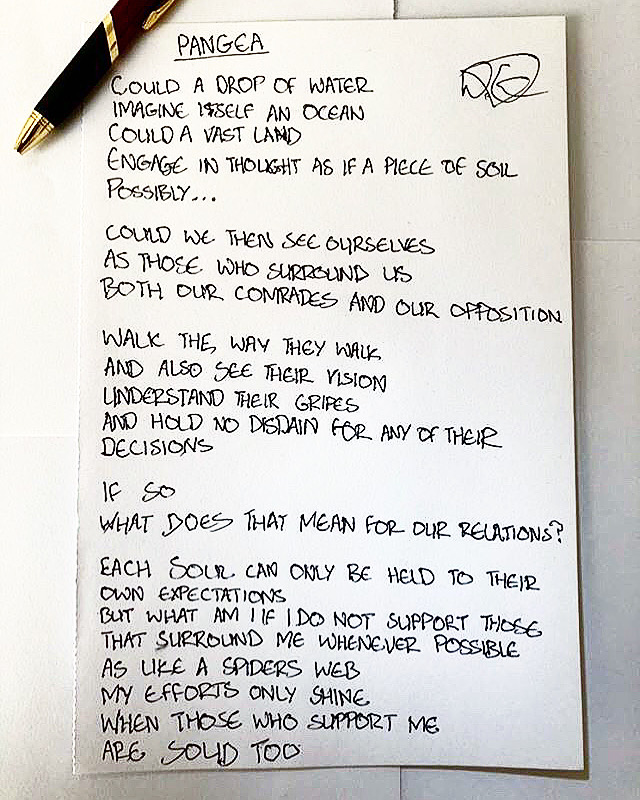 PANGEA
COULD A DROP OF WATER
IMAGINE ITSELF AN OCEAN
COULD A VAST LAND
ENGAGE IN THOUGHT AS IF A PIECE OF SOIL
POSSIBLY...
COULD WE THEN SEE OURSELVES
AS THOSE WHO SURROUND US
BOTH OUR COMRADES AND OUR OPPOSITION
WALK THE WAY THEY WALK
AND ALSO SEE THEIR VISION
UNDERSTAND THEIR GRIPES
AND HOLD NO DISDAIN FOR ANY OF THEIR
DECISIONS
IF SO
WHAT DOES THAT MEAN FOR OUR RELATIONS?
EACH SOUL CAN ONLY BE HELD TO THEIR
OWN EXPECTATIONS
BUT WHAT AM I IF I DO NOT SUPPORT THOSE
THAT SURROUND ME WHENEVER POSSIBLE
AS LIKE A SPIDERS WEB
MY EFFORTS ONLY SHINE
WHEN THOSE WHO SUPPORT ME
ARE SOLID TOO